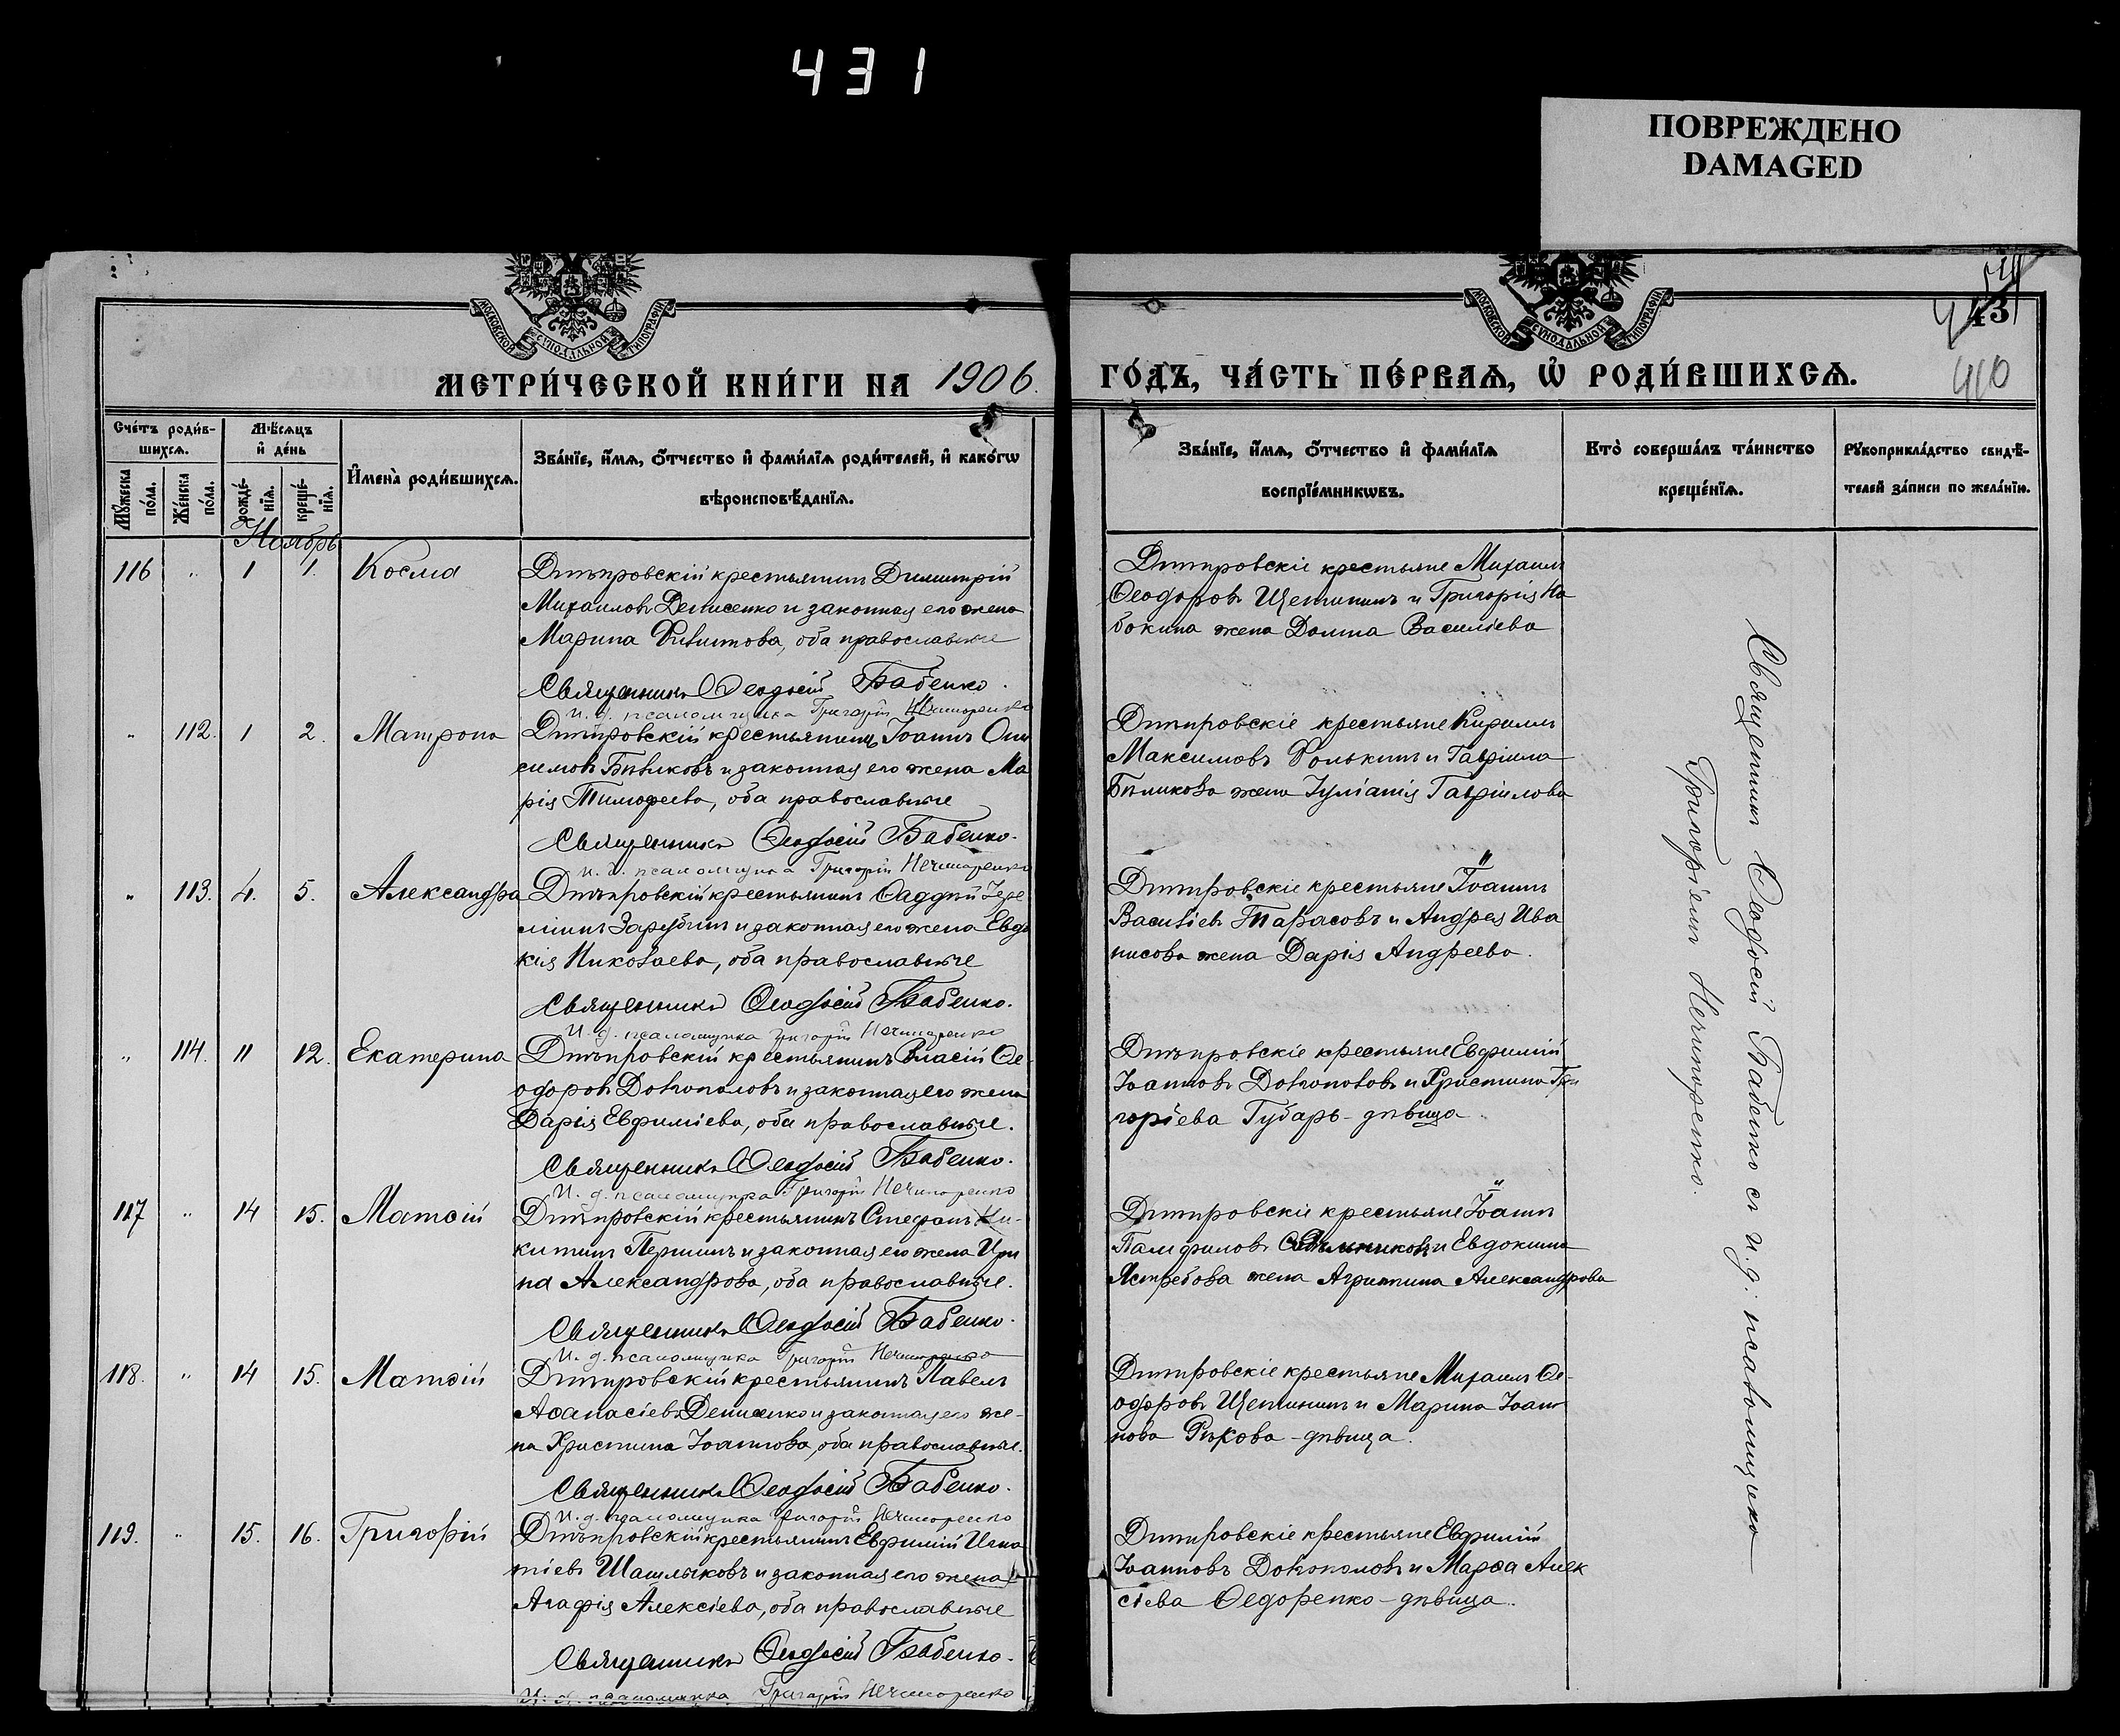 431
ПОВРЕЖДЕНО
DAMAGED
МОСКОВСКОЙ СУНОДАЛЬНОЙ ТИПОГРАФІИ
МОСКОВСКОЙ СУНОДАЛЬНОЙ ТИПОГРАФІИ
43
410
МЕТРИ́ЧЕСКОЙ КНИ́ГИ НА 1906.
ГО́ДЪ, ЧА́СТЬ ПЕ́РВАѦ, Ѡ҆ РОДИ́ВШИХСѦ.
Сче́тъ роди́в-
шихсѧ.
Мꙋ́жеска по́ла.
Же́нска по́ла.
Мѣ́сѧцъ
и҆ де́нь
рожде́-нїѧ.
креще́-нїѧ.
И҆мена̀ роди́вшихсѧ.
Зва́нїе, и҆́мѧ, ѻ҆́тчество и҆ фами́лїѧ роди́телей, и҆ како́гѡ
вѣроисповѣ́данїѧ.
Зва́нїе, и҆́мѧ, ѻ҆́тчество и҆ фами́лїѧ
воспрїе́мникѡвъ.
Кто̀ соверша́лъ та́инство
креще́нїѧ.
Рꙋкоприкла́дство свидѣ́-
телей за́писи по жела́нїю.
Ноябрь
116 " 1 1. Косма
Днѣпровскій крестьянинъ Димитрій
Михаиловъ Денисенко и законная его жена
Марина Филипова, оба православные
Священникъ Ѳеодосій Бабенко.
И. д. псаломщика Григорій Нечипоренко
Днѣпровскіе крестьяне Михаилъ
Ѳеодоровъ Щетининъ и Григорія На
бокина жена Домна Василіева
" 112. 1 2. Матрона
Днѣпровскій крестьянинъ Іоаннъ Они
симовъ Бѣликовъ и законная его жена Ма
рія Тимофеева, оба православные
Священникъ Ѳеодосій Бабенко.
И. д. псаломщика Григорій Нечипоренко
Днѣпровскіе крестьяне Кириллъ
Максимовъ Фолькинъ и Гавріила
Бѣликова жена Іуліанія Гавріилова
" 113. 4. 5. Александра
Днѣпровскій крестьянинъ Ѳаддей Іере
міинъ Зарубинъ и законная его жена Евдо
кія Николаева, оба православные
Священникъ Ѳеодосій Бабенко.
И. д. псаломщика Григорій Нечипоренко
Днѣпровскіе крестьяне Іоаннъ
Василіевъ Тарасовъ и Андрея Ива
нисова жена Дарія Андреева.
" 114. 11 12. Екатерина
Днѣпровскій крестьянинъ Власій Ѳе-
одоровъ Долгополовъ и законная его жена
Дарія Евфиміева, оба православные.
Священникъ Ѳеодосій Бабенко.
И. д. псаломщика Григорій Нечипоренко
Днѣпровскіе крестьяне Евфимій
Іоанновъ Долгополовъ и Христина Гри
горіева Губарь - дѣвица
117 " 14 15. Матѳій
Днѣпровскій крестьянинъ Стефанъ Ни-
китинъ Першинъ и законная его жена Ири
на Александрова, оба православные.
Священникъ Ѳеодосій Бабенко.
И. д. псаломщика Григорій Нечипоренко
Днѣпровскіе крестьяне Іоаннъ
Памфиловъ и Евдокима
Ястребова жена Агриппина Александрова
118. " 14 15. Матѳій
Днѣпровскій крестьянинъ Павелъ
Аѳанасіевъ Денисенко и законная его же-
на Христина Іоаннова, оба православные.
Священникъ Ѳеодосій Бабенко.
И. д. псаломщика Григорій Нечипоренко
Днѣпровскіе крестьяне Михаилъ Ѳе-
одоровъ Щетининъ и Марина Іоан
нова Рѣкова - дѣвица.
119. " 15. 16. Григорій
Днѣпровскій крестьянинъ Евфимій Игна
тіевъ Шашлыковъ и законная его жена
Агафія Алексіева, оба православные
Священникъ Ѳеодосій Бабенко.
И. д. псаломщика Григорій Нечипоренко
Днѣпровскіе крестьяне Евфимій
Іоанновъ Долгополовъ и Марѳа Алек
сіева Ѳедоренко - дѣвица.
Священникъ Ѳеодосій Бабенко съ и. д. псаломщика
Григоріемъ Нечипоренко.